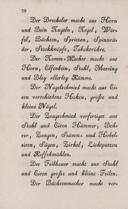 70
Der Drechsler macht aus Horn
und Bein Kugeln, Kegel, Wür-
fel, Büchsen, Spritzen, Spinnrä-
der, Stockknöpfe, Tabaksröhre.
Der Kamm-Macher macht aus
Horn, Elfenbein, Stahl, Messing
und Bley allerley Kämme.
Der Nagelschmied macht aus Ei-
sen verschiedene Haken, große und
kleine Nägel.
Der Zeugschmied verfertiget aus
Stahl und Eisen Hämmer, Boh-
rer, Zangen, Stämm- und Hobel-
eisen, Sägen, Zirkel,
und
Der Feilhauer macht aus Stahl
und Eisen große und kleine Feilen.
Der Büchsenmacher macht ver-